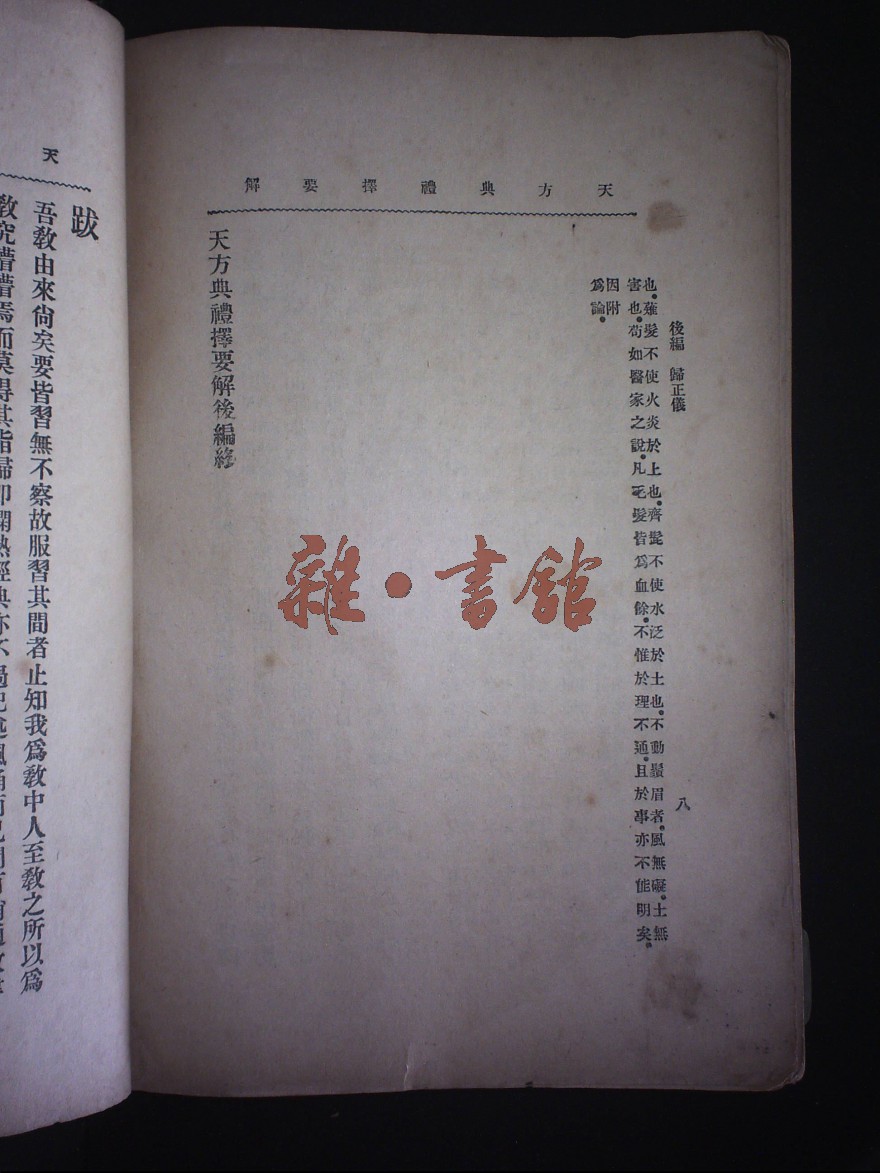 天方典禮擇要解
後編 歸正儀 八
也。薙髮不使火炎於上也。齊髭不使水泛於土也。不動鬚眉者。風無礙。土無
害也。苟如醫家之說。凡毛髮皆爲血餘。不惟於理不通。且於事亦不能明矣。
因附
爲論。
天方典禮擇要解後編終
雜·書館
天
跋
吾敎由來尙矣要皆習無不察故服習其間者止知我爲敎中人至敎之所以爲
敎究懵懵焉而莫得其指歸卽嫻熟經典亦不過